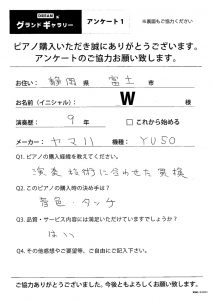 グランドギャラリー アンケート1 ※裏面もご協力ください
ピアノ購入いただき誠にありがとうございます。
アンケートのご協力お願い致します。
お住い： 静岡 県 富士 市
お名前(イニシャル)： W 様
演奏歴： 9 年 □ これから始める
メーカー： ヤマハ 機種： YU50
Q1. ピアノの購入経緯を教えてください。
演奏技術に合わせた買換
Q2. このピアノの購入時の決め手は？
音色・タッチ
Q3. 品質・サービス内容には満足いただけていますでしょうか？
はい
Q4. その他感想やご要望等、ご自由にご記入下さい。
ご協力ありがとうございました。今後ともよろしくお願い致します。